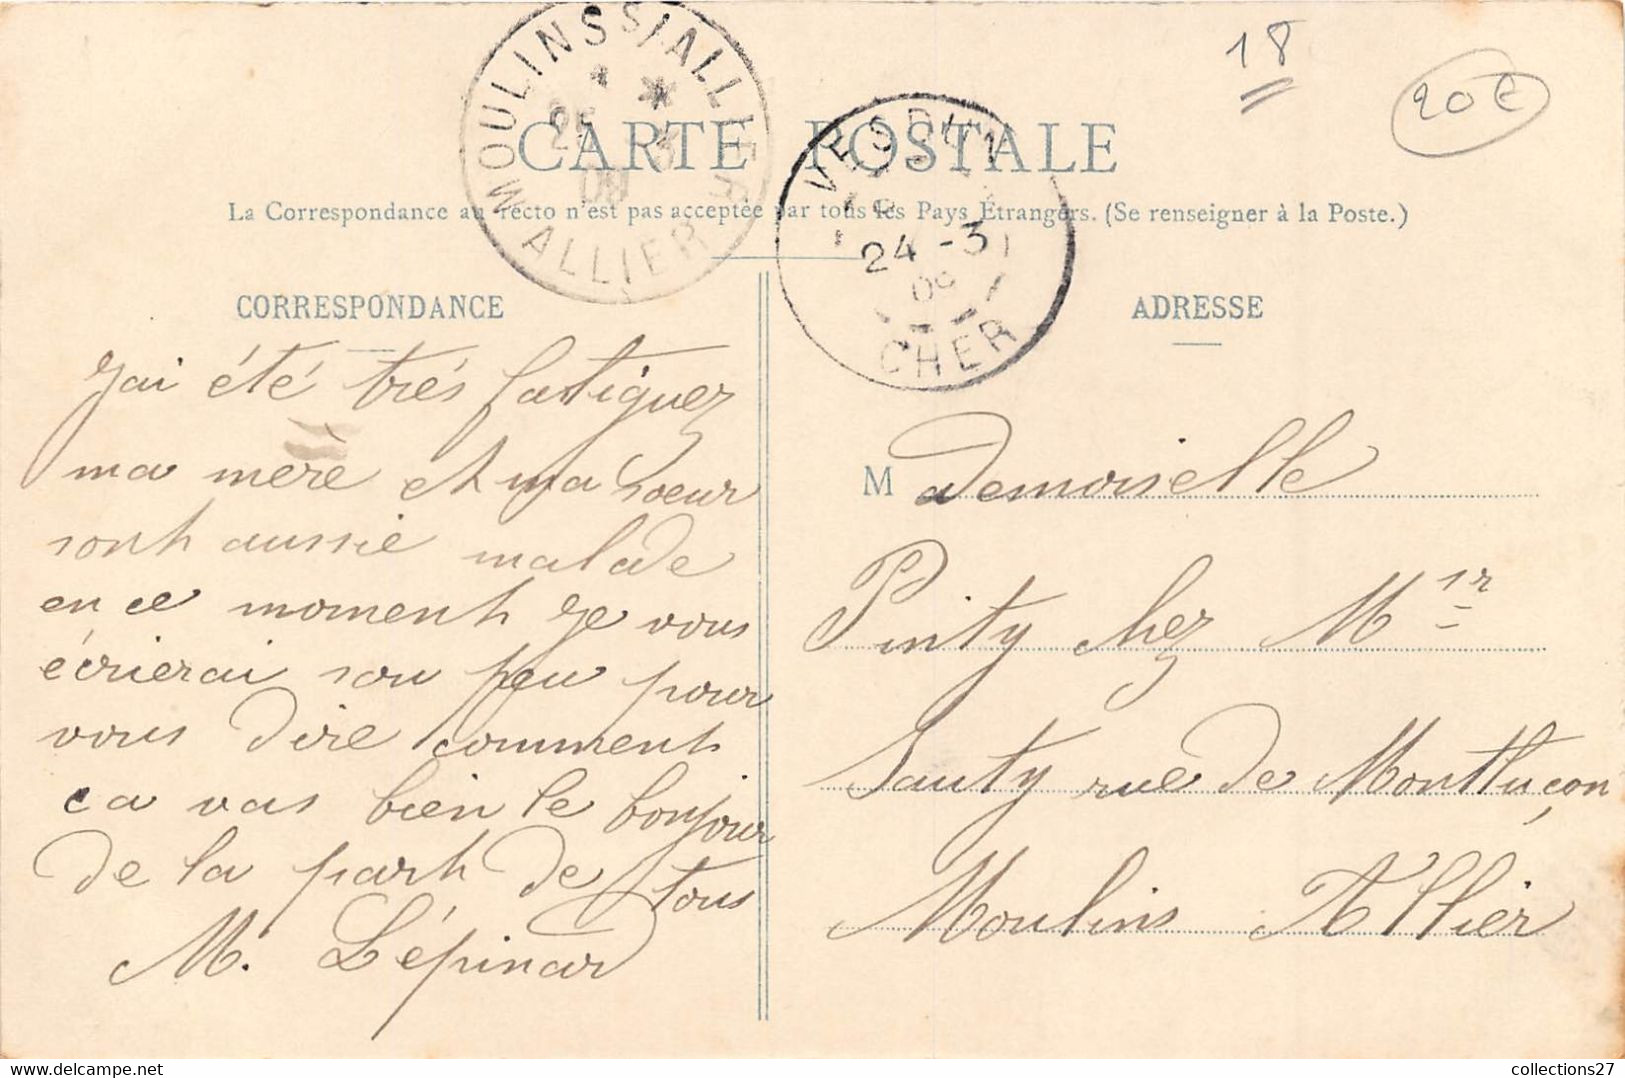 18
20€
MOULINS S/ALLIER
25 3
09
ALLIER
VESDUN
24 - 3
09
CHER
CARTE POSTALE
La Correspondance au recto n'est pas acceptée par tous les Pays Etrangers. (Se renseigner à la Poste.)
CORRESPONDANCE
J'ai été très fatiguez
ma mère et ma soeur
sont aussie malade
en ce moment je vous
écrierai sou peu pour
vous dire comment
ca vas bien le bonjour
de la part de tous
M. Lépinard
ADRESSE
Mademoiselle
Pinty chez Mr
Sauty rue de Montluçon
Moulins Allier
collections27